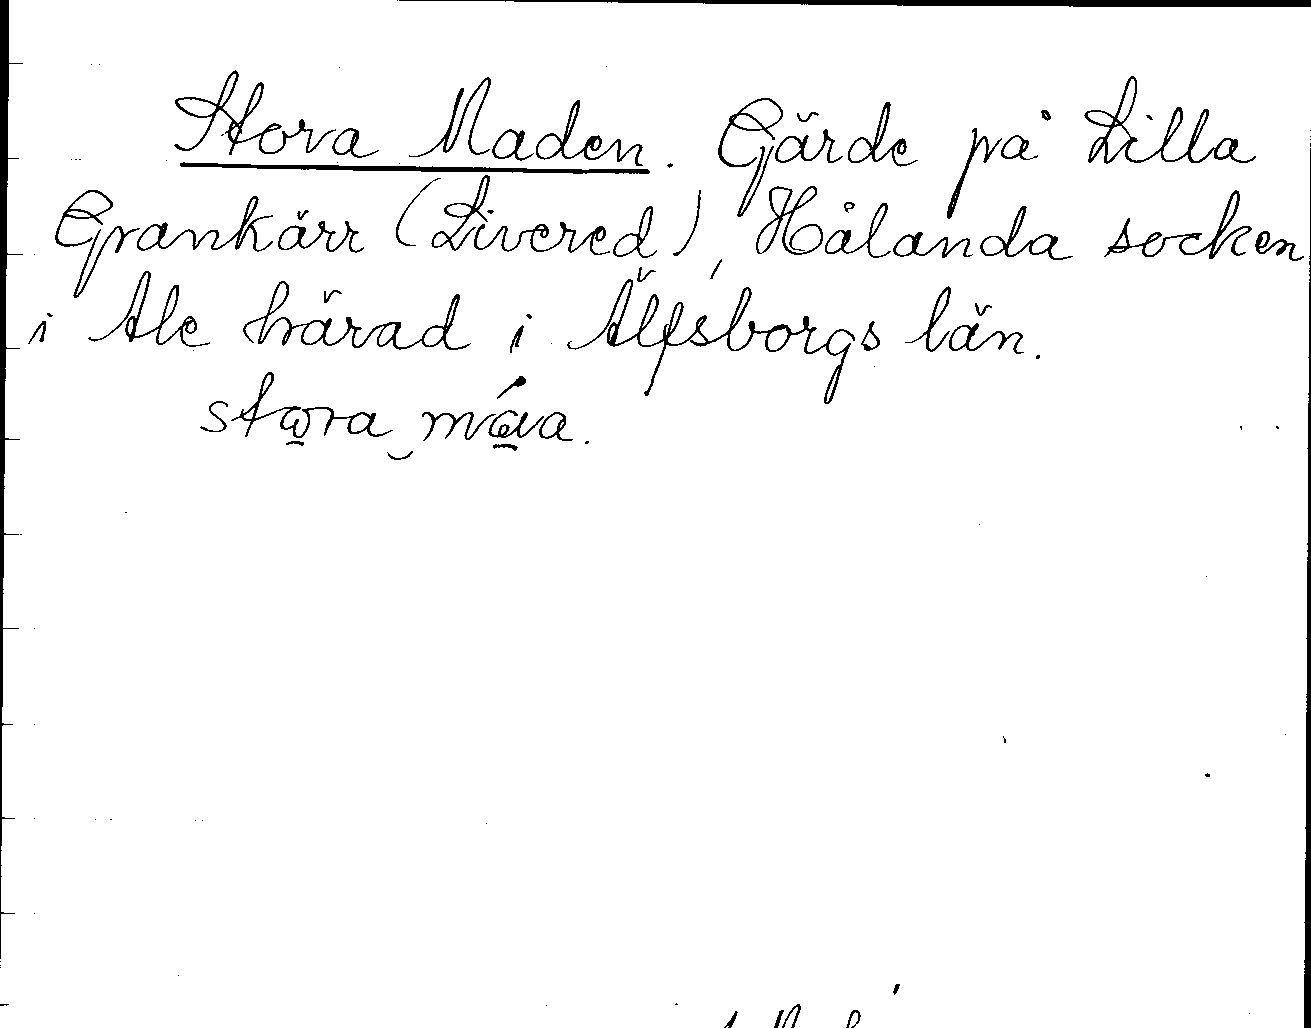 Stora Maden. Gärde på Lilla
Grankärr (Livered), Hålanda socken
i Ale härad i Älfsborgs län.
stora måva.